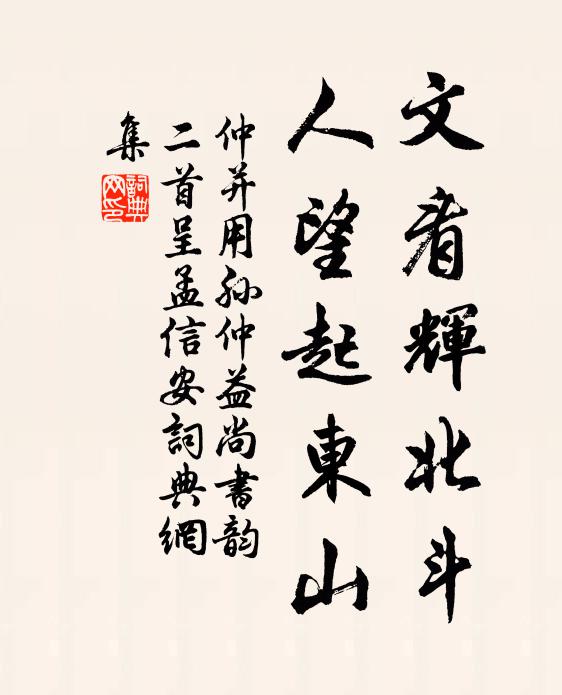 文看輝北斗
人望起東山
仲并用孙仲益尚書韵
二首呈孟信安詞典網
集
詞典
网印